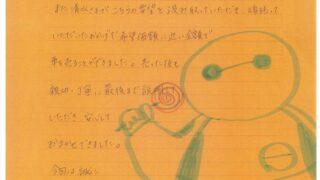 また清水さまが こちらの希望を 汲み取っていただき、頑張って
いただいたおかげで希望価額に近い金額で
車を売ることができました。売れた後も
親切・丁寧に最後まで説明して
いただき、安心して
おまかせできました。
今回は誠に